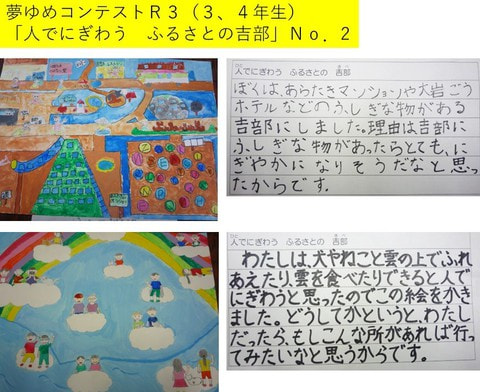 夢ゆめコンテストＲ３（３、４年生）
「人でにぎわう　ふるさとの吉部」Ｎｏ．２
人でにぎわう　ふるさとの　吉部
ぼくは、あらたきマンションや大岩ごう
ホテルなどのふしぎな物がある
吉部にしました。理由は吉部に
ふしぎな物があったらとても、に
ぎやかになりそうだなと思っ
たからです。
人でにぎわう　ふるさとの　吉部
わたしは、犬やねこと雲の上でふれ
あえたり、雲を食べたりできると人で
にぎわうと思ったのでこの絵をかき
ました。どうしてかというと、わたし
だったら、もしこんな所があれば行っ
てみたいなと思うからです。